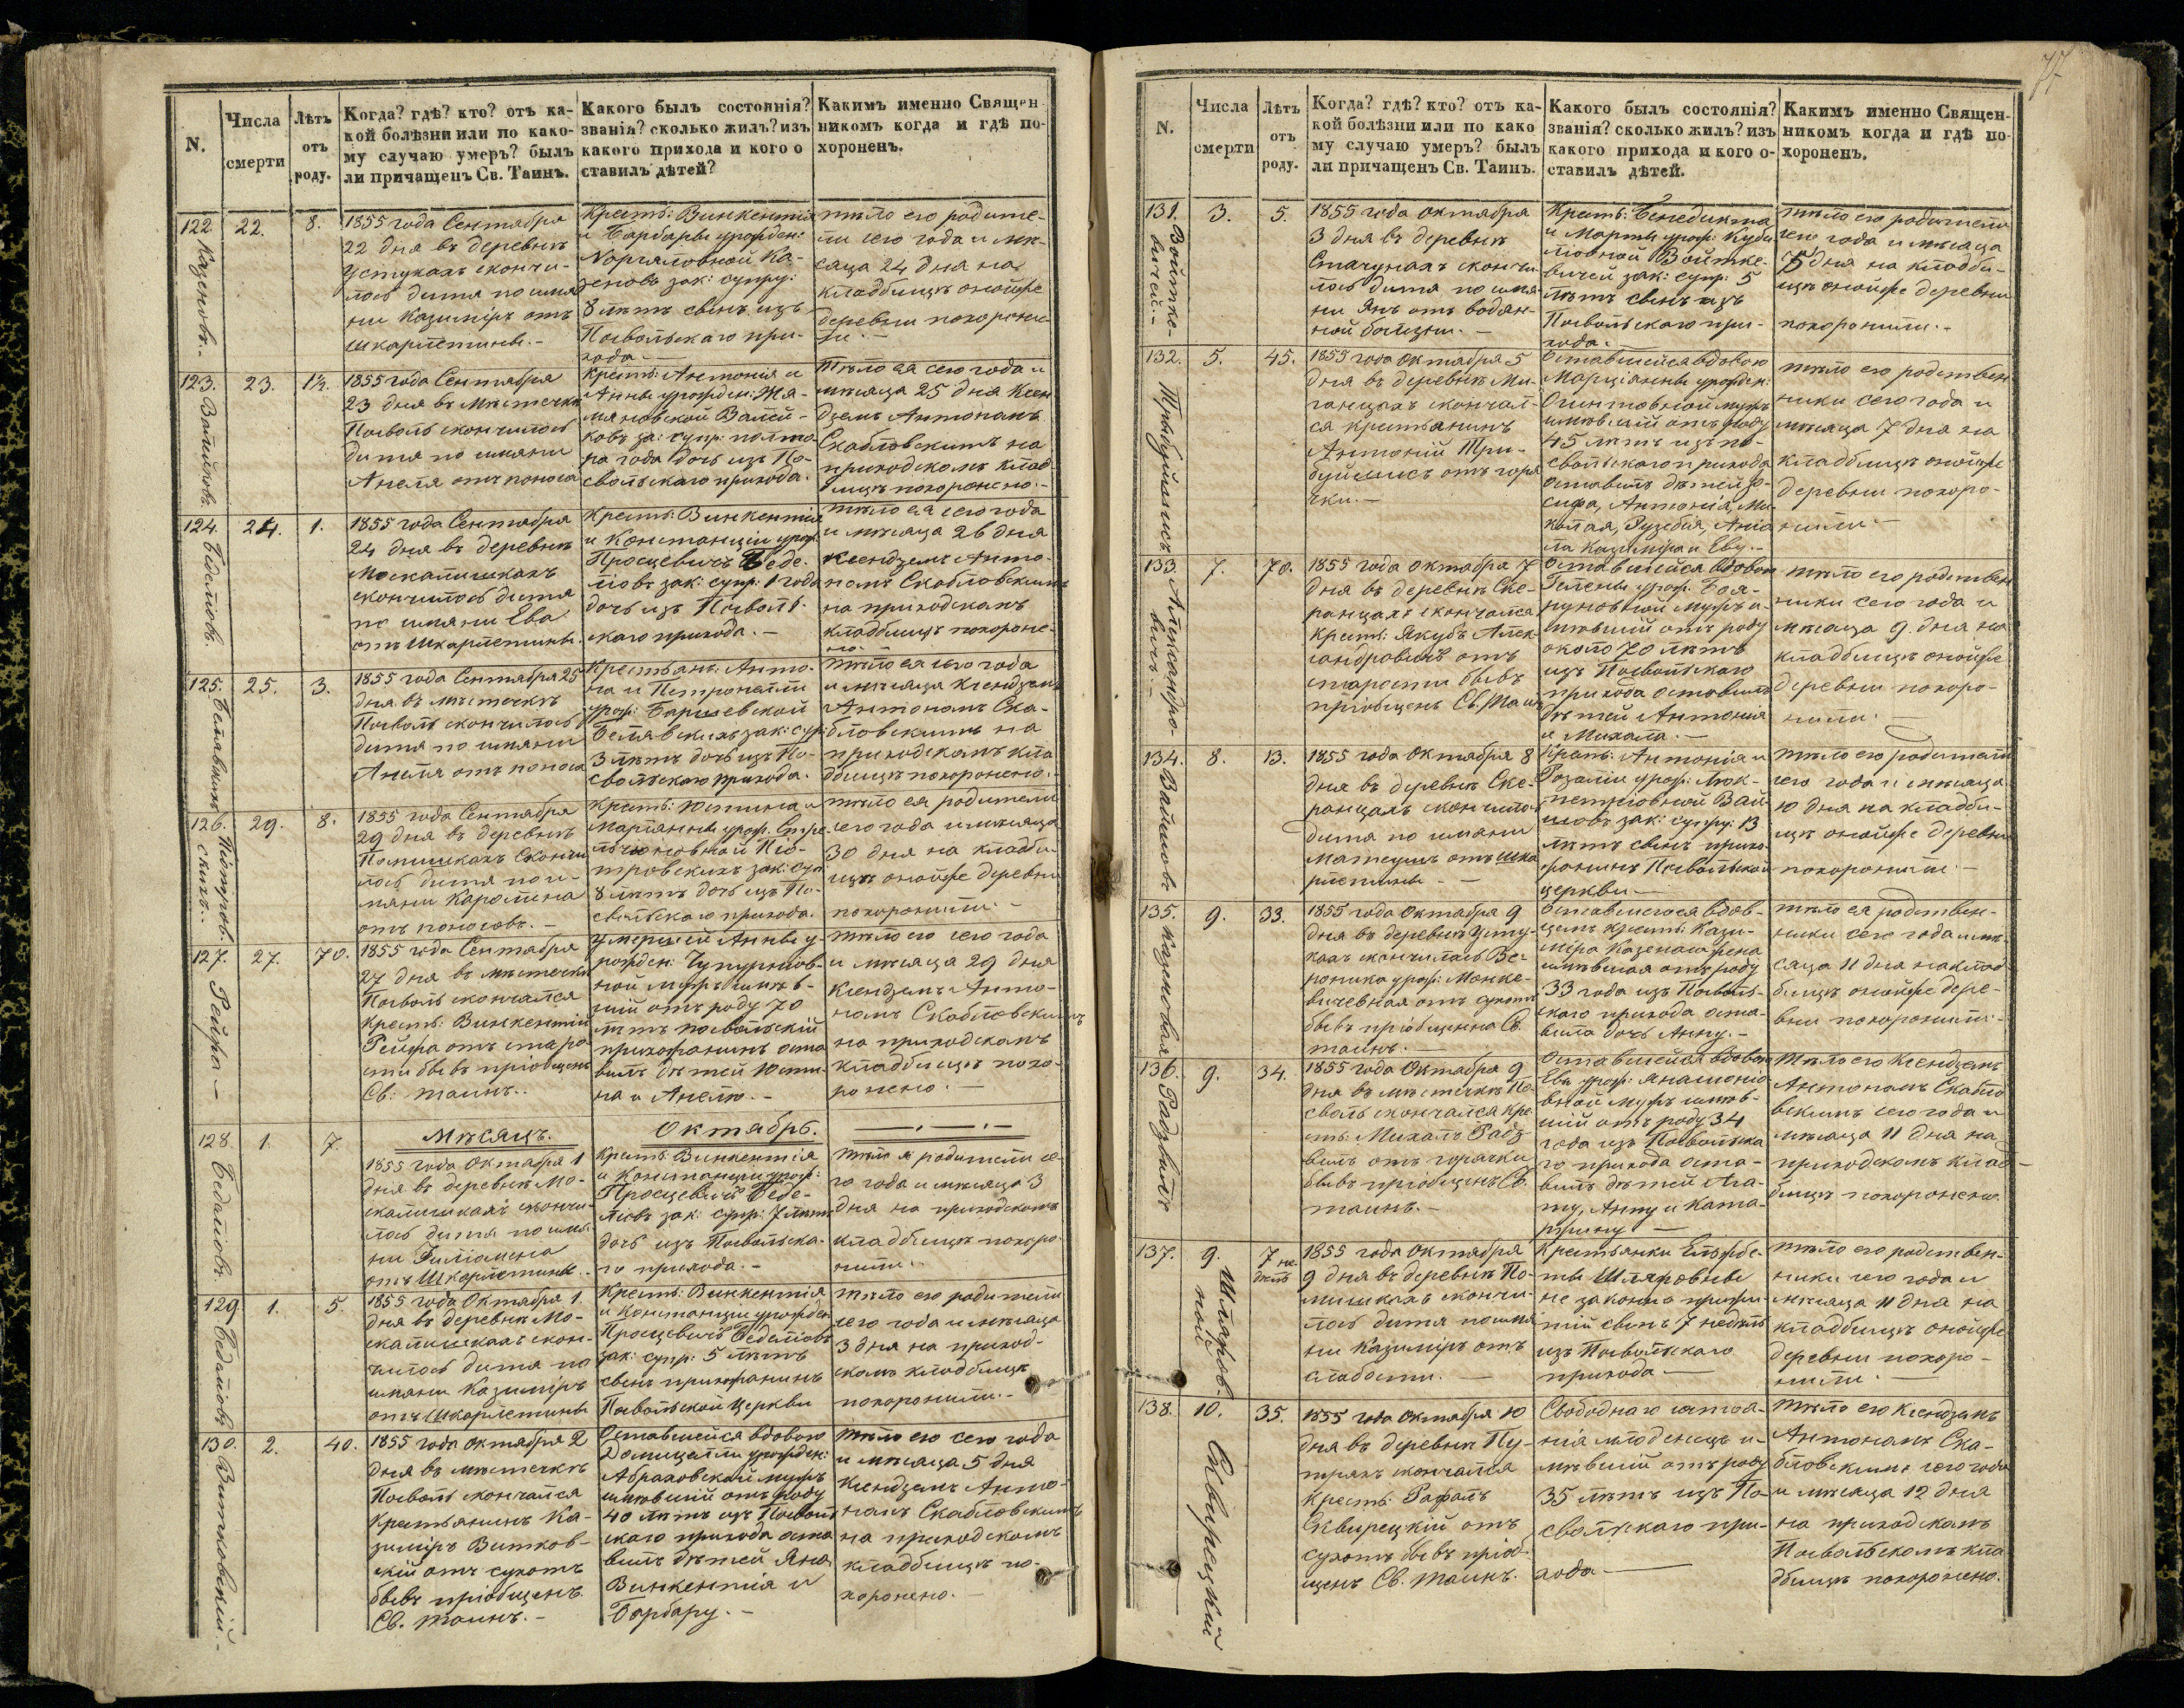 77
N.
Числа
смерти
Лѣтъ
отъ
роду.
Когда? гдѣ? кто? отъ ка-
кой болѣзни или по како-
му случаю умеръ? былъ
ли причащенъ Св. Таинъ.
Какого былъ состоянія?
званія? сколько жилъ? изъ
какого прихода и кого о
ставилъ дѣтей?
Какимъ именно Священ
никомъ когда и гдѣ по-
хороненъ.
122
Казеновъ.-
22.
8.
1855 года Сентября
22 дня въ деревнѣ
Устукахъ скончи-
лось дитя по имя
ни Казиміръ отъ
шкарлетины.-
Кресть: Винкентія
и Барбары урожден:
Норкяловной Ка-
зеновъ зак: супру:
8 лѣтъ сынъ изъ
Посвольскаго при-
хода.
тѣло его родите-
ли сего года и мѣ-
сяца 24 дня на
кладбищѣ онойже
деревни похорони-
ли.-
123.
23.
1½.
1855 года Сентября
23 дня въ мѣстечкѣ
Посволь скончилось
дитя по имяни
Анеля отъ поноса
Крестъ: Антонія и
Анны урожден: Жя-
мяновской Валей-
ковъ за: супр: полто-
ра года дочь изъ По-
свольскаго прихода.
Тѣло ея сего года и
мѣсяца 25 дня Ксен
дземъ Антонамъ
Скабловскимъ на
приходскомъ клад-
бищѣ похоронено.-
124.
Бедаловъ.
24.
1.
1855 года Сентября
24 дня въ деревнѣ
Москалишкахъ
скончилось дитя
по имяни Ева
отъ Шкарлетины.
Крестъ: Винкентія
и Констанціи урож:
Просцевичъ Беде-
ліовъ зак: супр: 1 года
дочь изъ Посволь-
скаго прихода.-
тѣло ея сего года
и мѣсяца 26 дня
Ксендземъ Анто-
номъ Скабловскимъ
на приходскамъ
кладбищѣ похороне-
но.
125.
Белявскихъ
25.
3.
1855 года Сентября 25
дня въ мѣстечкѣ
Посволь скончилось
дитя по имяни
Анеля отъ поноса
Крестьянъ: Анто-
на и Петронелли
урож: Баршевской
Белявскихъ зак: суп:
3 лѣтъ дочь изъ По-
свольскаго прихода.
тѣло ея сего года
и мѣсяца Ксендземъ
Антономъ Ска-
бловскимъ на
приходскамъ кла
дбищѣ похоронено.
126.
Піотров-
скихъ.
29.
8.
1855 года Сентября
29 дня въ деревнѣ
Помишкахъ Скончи
лось дитя по и-
мяни Каролина
отъ поносовъ.-
Крестъ: Юстина и
Маріянны урож. Стре-
льчюновной Піо-
тровскихъ зак: суп
8 лѣтъ дочь изъ По-
свольскаго прихода.
тѣло ея родители
сего года и мѣсяца
30 дня на кладби-
щѣ онойже деревни
похоронили.-
127.
Рейра-
27.
70.
1855 года Сентября
27 дня въ мѣстечкѣ
Посволь скончался
Крестъ: Винкентій
Рейра отъ старо-
сти бывъ пріобщенъ
Св: таинъ.
Умершей Анны у-
рожден: Чупурніов-
ной мужъ имѣв-
шій отъ роду 70
лѣтъ посвольскій
прихожанинъ оста
вилъ дѣтей Юсти-
на и Анелю.-
тѣло его сего года
и мѣсяца 29 дня
Ксендземъ Анто-
номъ Скабловскимъ
на приходскамъ
кладбищѣ похо-
ронено.-
Мѣсяцъ.
Октябрь.
128.
Бедаліовъ
1.
7.
1855 года Октября 1
дня въ деревнѣ Мо-
скалишкахъ скончи-
лось дитя по имя-
ни Филіомена
отъ Шкарлетины.
Крестъ: Винкентія
и Констанціи урож:
Просцевичъ Беде-
ліовъ зак: супр: 7 лѣтъ
дочь изъ Посвольска-
го прихода.-
тѣло ея родители се-
го года и мѣсяца 3
дня на приходскомъ
кладбищѣ похоро-
нили.
129.
Бедаліовъ
1.
5.
1855 года Октября 1.
дня въ деревнѣ Мо-
скалишкахъ скон-
чилось дитя по
имяни Казиміръ
отъ Шкарлетины
Крестъ: Винкентія
и Констанціи урожден
Просцевичъ Беделіовъ
зак: супр: 5 лѣтъ
сынъ прихожанинъ
Посвольской Церкви
тѣло его родители
сего года и мѣсяца
3 дня на приход-
скомъ кладбищѣ
похоронили.-
130.
Витковскій.-
2.
40.
1855 года Октября 2
дня въ мѣстечкѣ
Посволь скончался
Крестьянинъ Ка-
зиміръ Витков-
скій отъ сухотъ
бывъ пріобщенъ
Св. таинъ.-
Оставшейся вдовою
Домицелли урожден:
Абраховской мужъ
имѣвшій отъ роду
40 лѣтъ изъ Посволь
скаго прихода оста
вилъ дѣтей Яна
Винкентія и
Барбару.-
тѣло его сего года
и мѣсяца 5 дня
Ксендземъ Анто-
номъ Скабловскимъ
на приходскомъ
кладбищѣ по-
хоронено.-
N.
Числа
смерти
Лѣтъ
отъ
роду.
Когда? гдѣ? кто? отъ ка-
кой болѣзни или по како
му случаю умеръ? былъ
ли причащенъ Св. Таинъ.
Какого былъ состоянія?
званія? сколько жилъ? изъ
какого прихода и кого о-
ставилъ дѣтей.
Какимъ именно Священ-
никомъ когда и гдѣ по-
хороненъ.
131.
Войтке-
вичей.-
3.
5.
1855 года октября
3 дня въ деревнѣ
Стачунахъ скончи
лось дитя по имя-
ни Янъ отъ водян-
ной болѣзни.-
Крестъ: Бенедикта
и Марты урож: Куби
ліовной Войтке-
вичей зак: супр: 5
лѣтъ сынъ изъ
Посвольскаго при-
хода.-
тѣло его родители
сего года и мѣсяца
5 дня на кладби-
щѣ онойже деревни
похоронили.-
132.
5.
45.
1855 года октября 5
дня въ деревнѣ Ми-
ганцахъ скончал-
ся крестьянинъ
Антоній Три-
буйшисъ отъ горя
чки.-
Оставшейся вдовою
Марціянны урожден:
Огинтовной мужъ
имѣвшій отъ роду
45 лѣтъ изъ По-
свольскаго прихода
оставилъ дѣтей Іо-
сифа, Антонія, Ми-
колая,
Казиміра и Еву.-
тѣло его родствен
ники сего года и
мѣсяца 7 дня на
кладбищѣ онойже
деревни похоро-
нили.-
133.
Александро-
вичъ.-
7.
70.
1855 года октября 7
дня въ деревнѣ Ске-
ранцахъ скончался
Крестъ: Якубъ Алек-
сандровичъ отъ
старости бывъ
пріобщенъ Св. Таинъ
Оставшейся вдовою
Гелены урож: Боя-
руновной мужъ и-
мѣвшій отъ роду
около 70 лѣтъ
изъ Посвольскаго
прихода оставилъ
дѣтей Антонія
и Михала.-
тѣло его родствен
ники сего года и
мѣсяца 9. дня на
кладбищѣ онойже
деревни похоро-
нили.-
134.
8.
13.
1855 года октября 8
дня въ деревнѣ Ске-
ранцахъ скончило
дитя по имяни
Матеушъ отъ шка
рлетины-
Крестъ: Антонія и
Розаліи урож:
зак: супру: 13
лѣтъ сынъ прихо-
жанинъ Посвольской
церкви-
тѣло его родители
сего года и мѣсяца
10 дня на кладби-
щѣ онойже деревни
похоронили.-
135.
Казеновая
9.
33.
1855 года октября 9
дня въ деревнѣ Усту-
кахъ скончилась Ве-
роника урож: Монке-
вичевная отъ сухотъ
бывъ пріобщенна Св.
таинъ.-
Оставшегося вдов-
цемъ крестъ: Кази-
міра Казенаса жена
имѣвшая отъ роду
33 года изъ Посволь-
скаго прихода оста-
вила дочь Анну.-
тѣло ея родствен-
ники сего года и мѣ-
сяца 11 дня на клад-
бищѣ онойже дере-
вни похоронили.-
136.
Радзвилъ
9.
34.
1855 года Октября 9
дня въ мѣстечкѣ По-
своль скончался кре-
стъ: Михалъ Радз
вилъ отъ горячки
бывъ пріобщенъ Св.
таинъ.-
Оставшейся вдовою
Евы урож: Яналіоніо
вной мужъ имѣв-
шій отъ роду 34
года изъ Посвольска
го прихода оста-
вилъ дѣтей Ага-
ту, Анну и Ката-
ржину-
тѣло его Ксендземъ
Антономъ Скабло
вскимъ сего года и
мѣсяца 11 дня на
приходскомъ клад-
бищѣ похоронено.
137.
9.
7 не-
дѣль
1855 года октября
9 дня въ деревнѣ По-
мишкахъ скончи-
лось дитя по имя
ни Казиміръ отъ
слабости.-
Крестьянки Ельжбе-
ты Шляровны
не законно прижи-
тій сынъ 7 недѣль
изъ Посвольскаго
прихода-
тѣло его родствен-
ники сего года и
мѣсяца 11 дня на
кладбищѣ онойже
деревни похоро-
нили.-
138.
Сквирецкій
10.
35.
1855 года октября 10
дня въ деревнѣ Пу-
трахъ скончался
Крестъ: Рафалъ
Сквирецкій отъ
сухотъ бывъ пріоб-
щенъ Св. таинъ.
Свободнаго состоа-
нія младенецъ и-
мѣвшій отъ роду
35 лѣтъ изъ По-
свольскаго при-
хода.-
тѣло его Ксендземъ
Антономъ Ска-
бловскимъ сего года
и мѣсяца 12 дня
на приходскамъ
Посвольскомъ кла
дбищѣ похоронено.